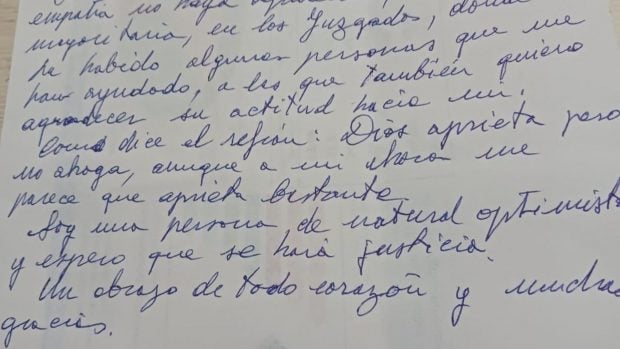 empatía no haya
mayoritaria, en los Juzgados, donde
ha habido algunas personas que me
han ayudado, a las que también quiero
agradecer su actitud hacia mí.
Como dice el refrán: Dios aprieta pero
no ahoga, aunque a mi ahora me
parece que aprieta bastante.
Soy una persona de natural optimista
y espero que se hará justicia.
Un abrazo de todo corazón y muchas
gracias.